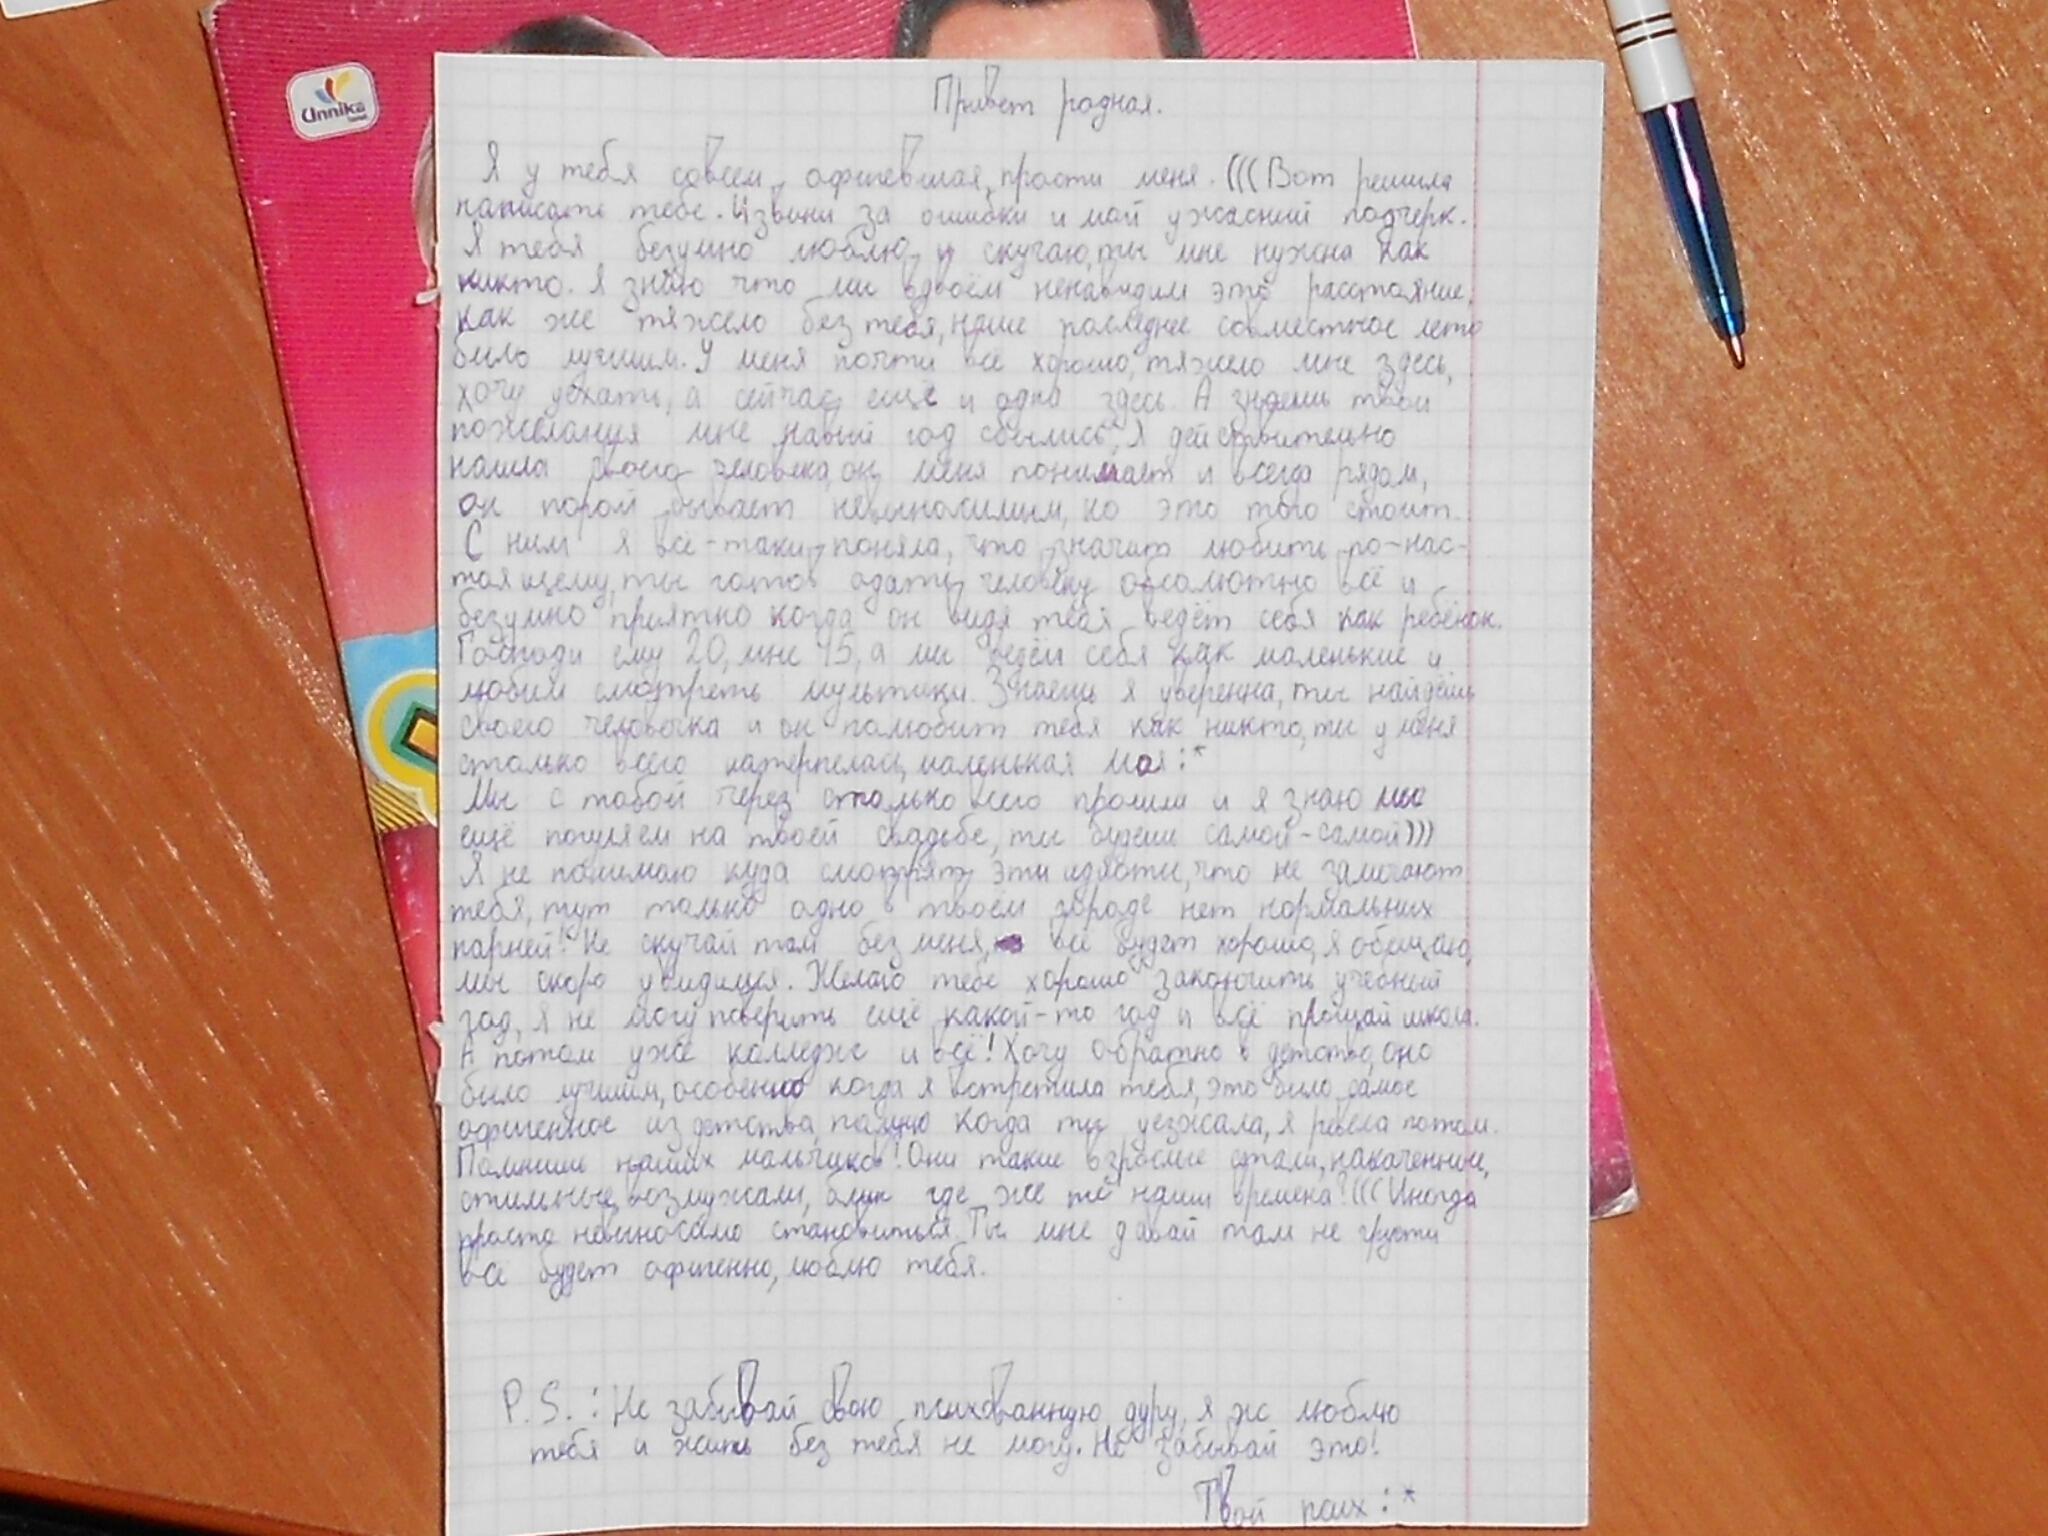 Unnika
Привет родная.
Я у тебя совсем офигевшая, прости меня. (((Вот решила
написать тебе. Извини за ошибки и мой ужасный подчерк.
Я тебя безумно люблю и скучаю, ты мне нужна как
никто. Я знаю что мы вдвоём ненавидим это расстояние,
как же тяжело без тебя, наше последнее совместное лето
было лучшим. У меня почти всё хорошо, тяжело мне здесь,
хочу уехать, а сейчас ещё и одна здесь. А знаешь твои
пожелания мне на новый год сбылись, я действительно
нашла своего человека, он меня понимает и всегда рядом,
он порой бывает невыносимым, но это того стоит.
С ним я всё-таки поняла, что значит любить по-нас-
тоящему, ты готов одать человеку абсолютно всё и
безумно приятно когда он видя тебя ведёт себя как ребёнок.
Господи ему 20, мне 15, а мы ведём себя как маленькие и
любим смотреть мультики. Знаешь я уверенна, ты найдёшь
своего человечка и он полюбит тебя как никто, ты у меня
столько всего натерпелась, маленькая моя :*
Мы с тобой через столько всего прошли и я знаю мы
ещё погуляем на твоей свадьбе, ты будеш самой-самой)))
Я не понимаю куда смотрят эти идиоты, что не замечают
тебя, тут только одно в твоём городе нет нормальных
парней! Не скучай там без меня, всё будет хорошо, я обещаю,
мы скоро увидимся. Желаю тебе хорошо закончить учебный
год, я не могу поверить ещё какой-то год и всё прощай школа.
А потом уже колледж и всё! Хочу обратно в детство, оно
было лучшим, особенно когда я встретила тебя, это было самое
офигенное из детства, помню когда ты уезжала, я ревела потом.
Помниш наших мальчиков! Они такие взрослые стали, накаченные,
стильные, возмужали, блин где же те наши времена?(((Иногда
просто невыносимо становиться. Ты мне давай там не грусти
всё будет офигенно, люблю тебя.
P.S.: Не забывай свою психованную дуру, я ж люблю
тебя и жить без тебя не могу. Не забывай это!
Твой псих :*